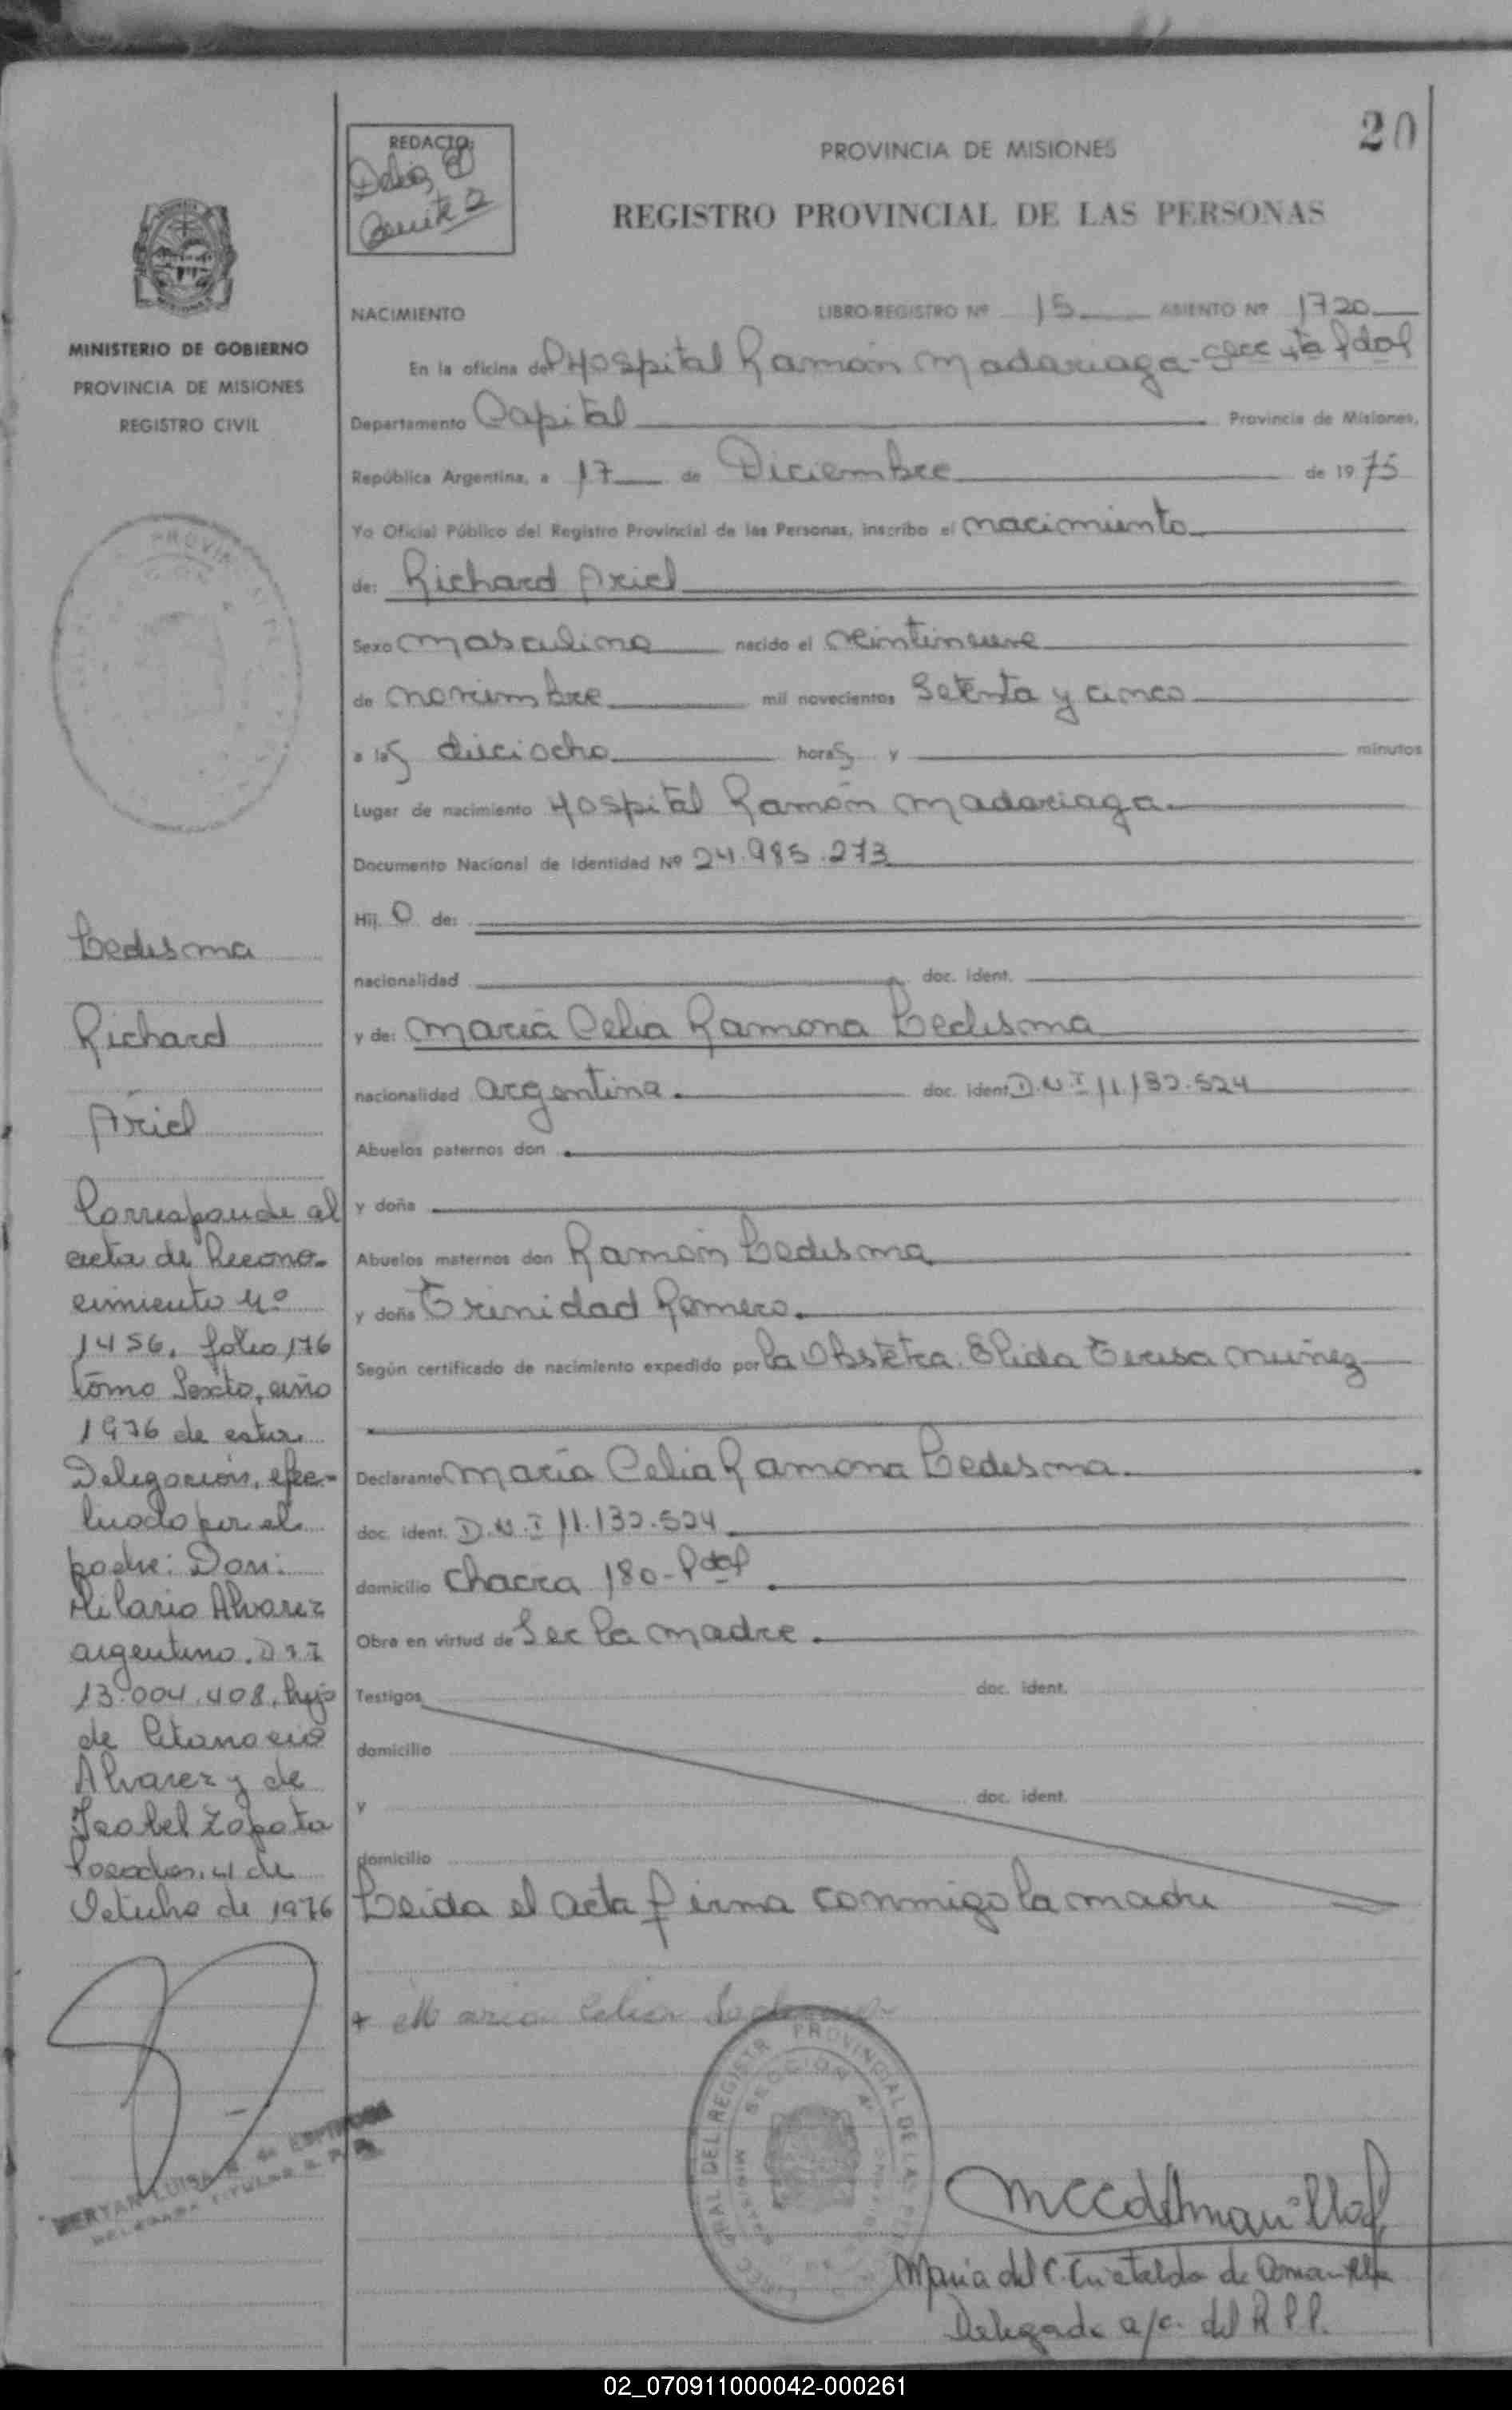 20
REDACTO:
PROVINCIA DE MISIONES
REGISTRO PROVINCIAL DE LAS PERSONAS
MINISTERIO DE GOBIERNO
PROVINCIA DE MISIONES
REGISTRO CIVIL
Ledesma
Richard
Ariel
Corresponde al
acta de Recono-
cimiento Nº
1456, folio 176
tomo Sexto, año
1976 de esta
Delegación, efec-
tuado por el
padre: Don:
Hilario Alvarez
argentino. D.N.I
13.004.408, hijo
de
Alvarez y de
Isabel Zapata
Posadas, 4 de
Octubre de 1976
NACIMIENTO LIBRO-REGISTRO Nº 15 ASIENTO Nº 1720
En la oficina del Hospital Ramón Madariaga-Secc 4ta Pdas
Departamento Capital Provincia de Misiones,
República Argentina, a 17 de Diciembre de 1975
Yo Oficial Público del Registro Provincial de las Personas, inscribo el nacimiento
de: Richard Ariel
Sexo masculino nacido el veintinueve
de noviembre mil novecientos setenta y cinco
a las dieciocho horas y minutos
Lugar de nacimiento Hospital Ramón Madariaga.
Documento Nacional de Identidad Nº 24.985.273
Hij o de:
nacionalidad doc. ident.
y de: María Celia Ramona Ledesma
nacionalidad argentina. doc. ident. D.N.I 11.132.524
Abuelos paternos don
y doña
Abuelos maternos don Ramón Ledesma
y doña Trinidad Romero.
Según certificado de nacimiento expedido por la Obstetra. Elida Teresa Nuñez
Declarante María Celia Ramona Ledesma.
doc. ident. D.N.I 11.132.524
domicilio Chacra 180-Pdas
Obra en virtud de Ser la madre.
Testigos doc. ident.
domicilio
y doc. ident.
domicilio
Leida el acta firma conmigo la madre
+ Maria Celia Ledesma
María del C.
Delegada a/c. del R.P.P.
02_070911000042-000261